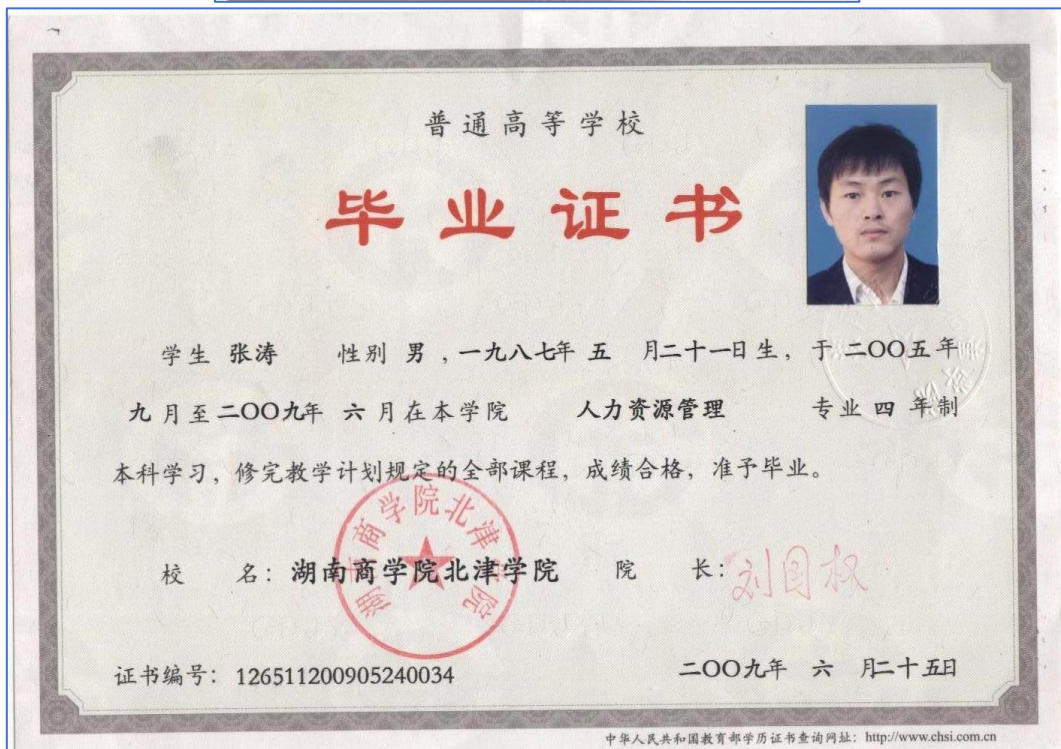 普通高等学校
毕业证书
学生 张涛 性别 男，一九八七年 五 月二十一日生，于 二〇〇五 年
九 月至 二〇〇九年 六 月在本学院 人力资源管理 专业 四 年制
本科学习，修完教学计划规定的全部课程，成绩合格，准予毕业。
湖南商学院北津学院
校 名：湖南商学院北津学院 院 长：
证书编号：126511200905240034 二〇〇九年 六 月二十五日
中华人民共和国教育部学历证书查询网址：http://www.chsi.com.cn